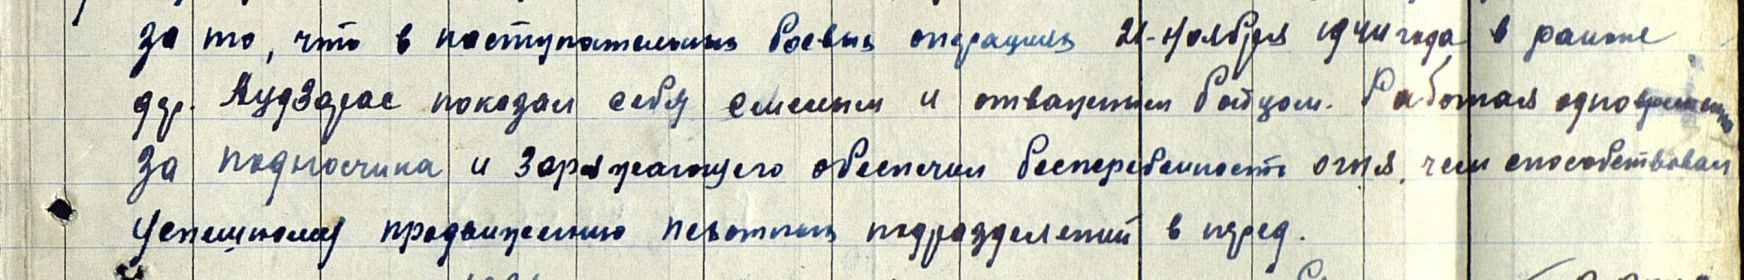 за то, что в наступательных боевых операциях 21-ноября 1944 года в районе
дер. Аудзарас показал себя смелым и отважным бойцом. Работая одновременно
за подносчика и заряжающего обеспечил бесперебойность огня, чем способствовал
успешному продвижению пехотных подразделений в перед.